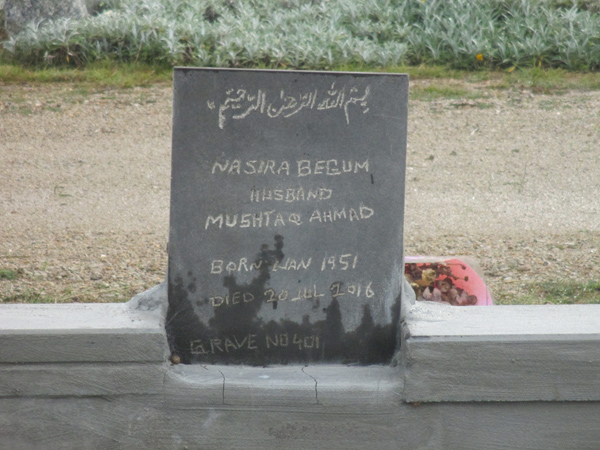 بسم الله الرحمن الرحيم
NASIRA BEGUM
HUSBAND
MUSHTAQ AHMAD
BORN JAN 1951
DIED 20 JUL 2016
GRAVE NO 401